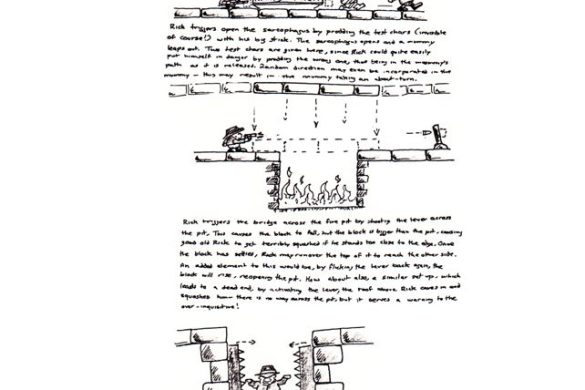 Rick triggers open the sarcophagus by prodding the test chars (invisible
of course!) with his big stick. The sarcophagus opens and a mummy
leaps out. Two test chars are given here, since Rick could quite easily
put himself in danger by prodding the wrong one, thus being in the mummy's
path as it is released. Random direction may even be incorporated in the
mummy - this may result in the mummy taking an about-turn.
Rick triggers the bridge across the fire pit by shooting the lever across
the pit. This causes the block to fall, but the block is bigger than the pit, causing
good old Rick to get terribly squashed if he stands too close to the edge. Once
the block has settled, Rick may run over the top of it to reach the other side.
An added element to this would be, by flicking the lever back again, the
block will rise, reopening the pit. How about also, a similar set-up, which
leads to a dead end, by activating the lever, the roof above Rick caves in and
squashes him - there is no way across the pit, but it serves a warning to the
over-inquisitive!